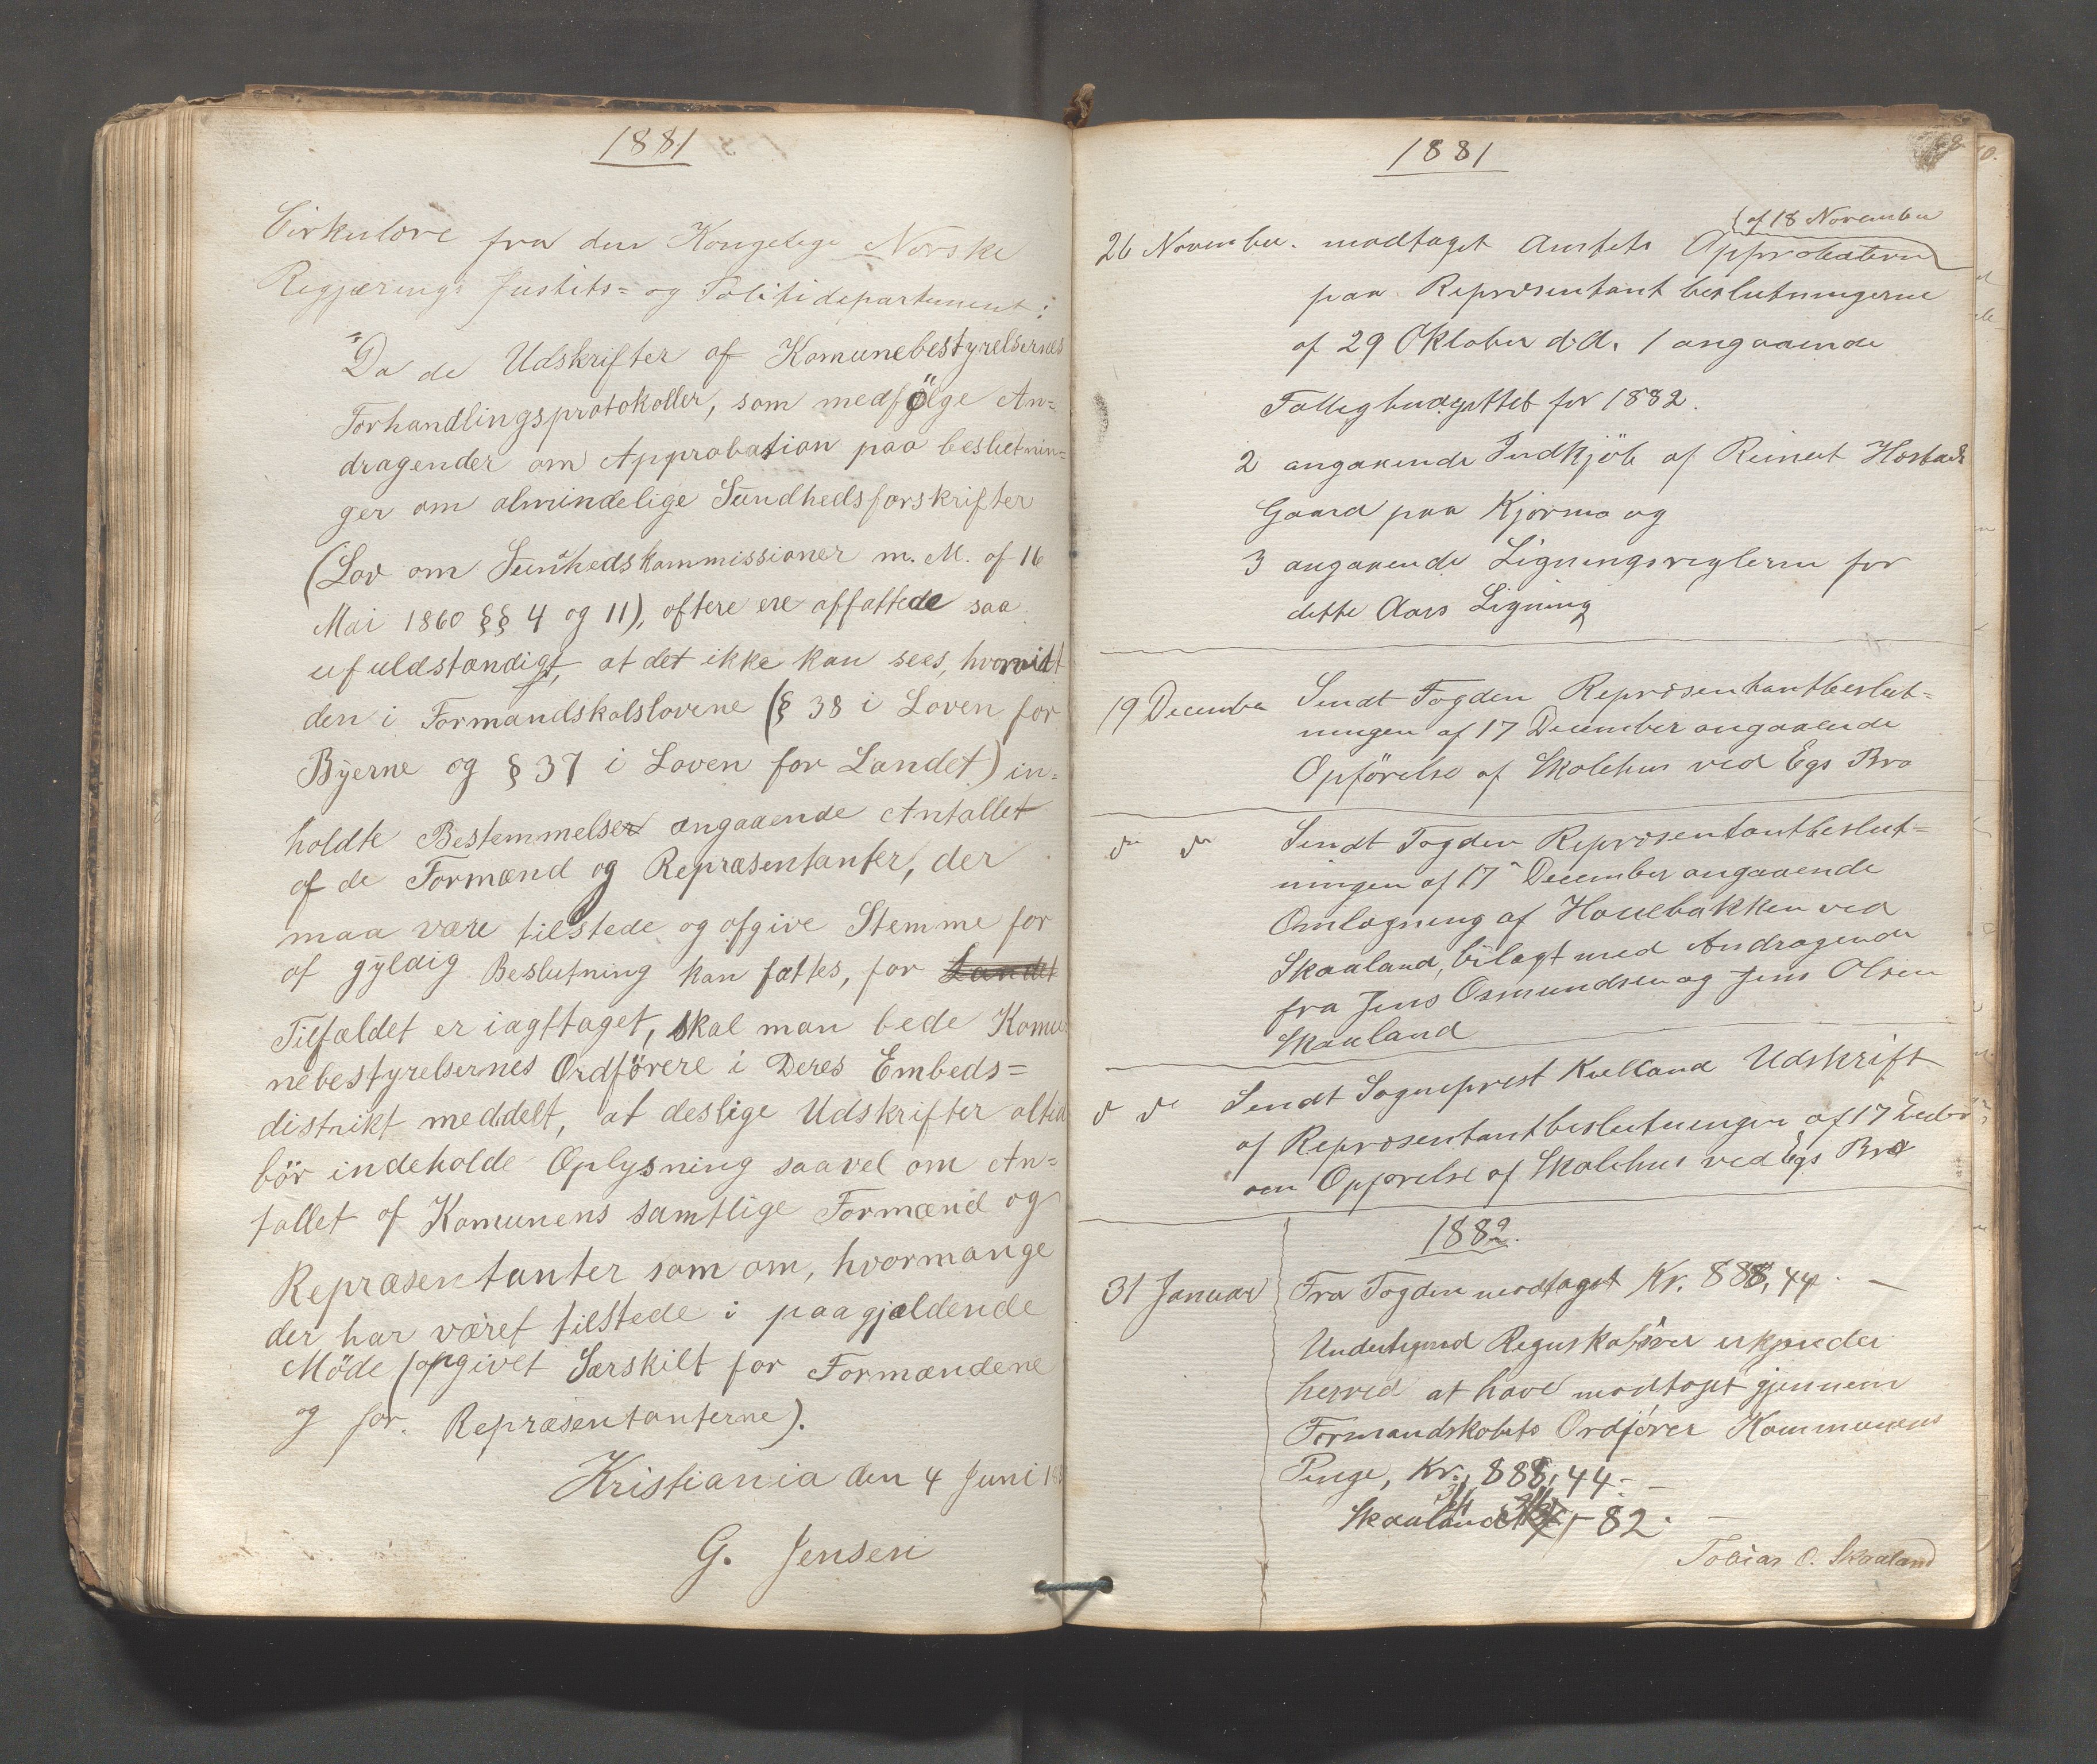 1881
Cirkulære fra den Kongelige Norske
Regjærings Justits= og Politidepartement:
"Da de Udskrifter af Komunebestyrelsernes
Forhandlingsprotokoller, som medfölge An=
dragender om Approbation paa beslutnin=
ger om almindelige Sundhedsforskrifter
(Lov om Sunhedskommissioner m. M. af 16
Mai 1860 §§ 4 og 11), oftere ere affattede saa
ufuldstændigt, at det ikke kan sees, hvorvidt
den i Formandskabslovene (§ 38 i Loven for
Byerne og § 37 i Loven for Landet) in=
holdte Bestemmelser angaaende Antallet
af de Formænd og Repræsentanter, der
maa være tilstede og afgive Stemme for
at gyldig Beslutning kan fattes, for Landet
Tilfældet er iagttaget, skal man bede Komu
nebestyrelsernes Ordförere i Deres Embeds=
distrikt meddelt, at deslige Udskrifter altid
bör indeholde Oplysning saavel om An=
tallet af Komunens samtlige Formænd og
Repræsentanter som om, hvormange
der har været tilstede i paagjældende
Möde (opgivet Særskilt for Formændene
og for Repræsentanterne).
Kristiania den 4 Juni 18
G. Jensen
1881
af 18 November
26 November. modtaget Amtets Approbation
paa Repræsentantbeslutningerne
af 29 Oktober d.A. 1 angaaende
Fattigbudgettet for 1882.
2 angaaende Indkjöb af Reinert
Gaard paa Kjørmo og
3 angaaende Ligningsreglerne for
dette Aars Ligning
19 December Sendt Fogden Repræsentantbeslut=
ningen af 17 December angaaende
Opförelse af Skolehus ved Egs Bro
do do Sendt Fogden Repræsentantbeslut=
ningen af 17 December angaaende
Omlægning af Hanebakken ved
Skaaland, bilagt med Andragende
fra Jens Osmundsen og Jens Olsen
Skaaland
do do Sendt Sogneprest Kielland Udskrift
af Repræsentantbeslutningen af 17 Decbr
om Opførelse af Skolehus ved Egs Bro
1882.
31 Januar Fra Fogden modtaget Kr. 888,44. —
Undertegned Regnskabsfører erkjender
herved at have modtaget gjennem
Formandskabets Ordfører Kommunens
Penge, Kr. 888,44. —
Skaaland 31/1 – 82. —
Tobias O. Skaaland